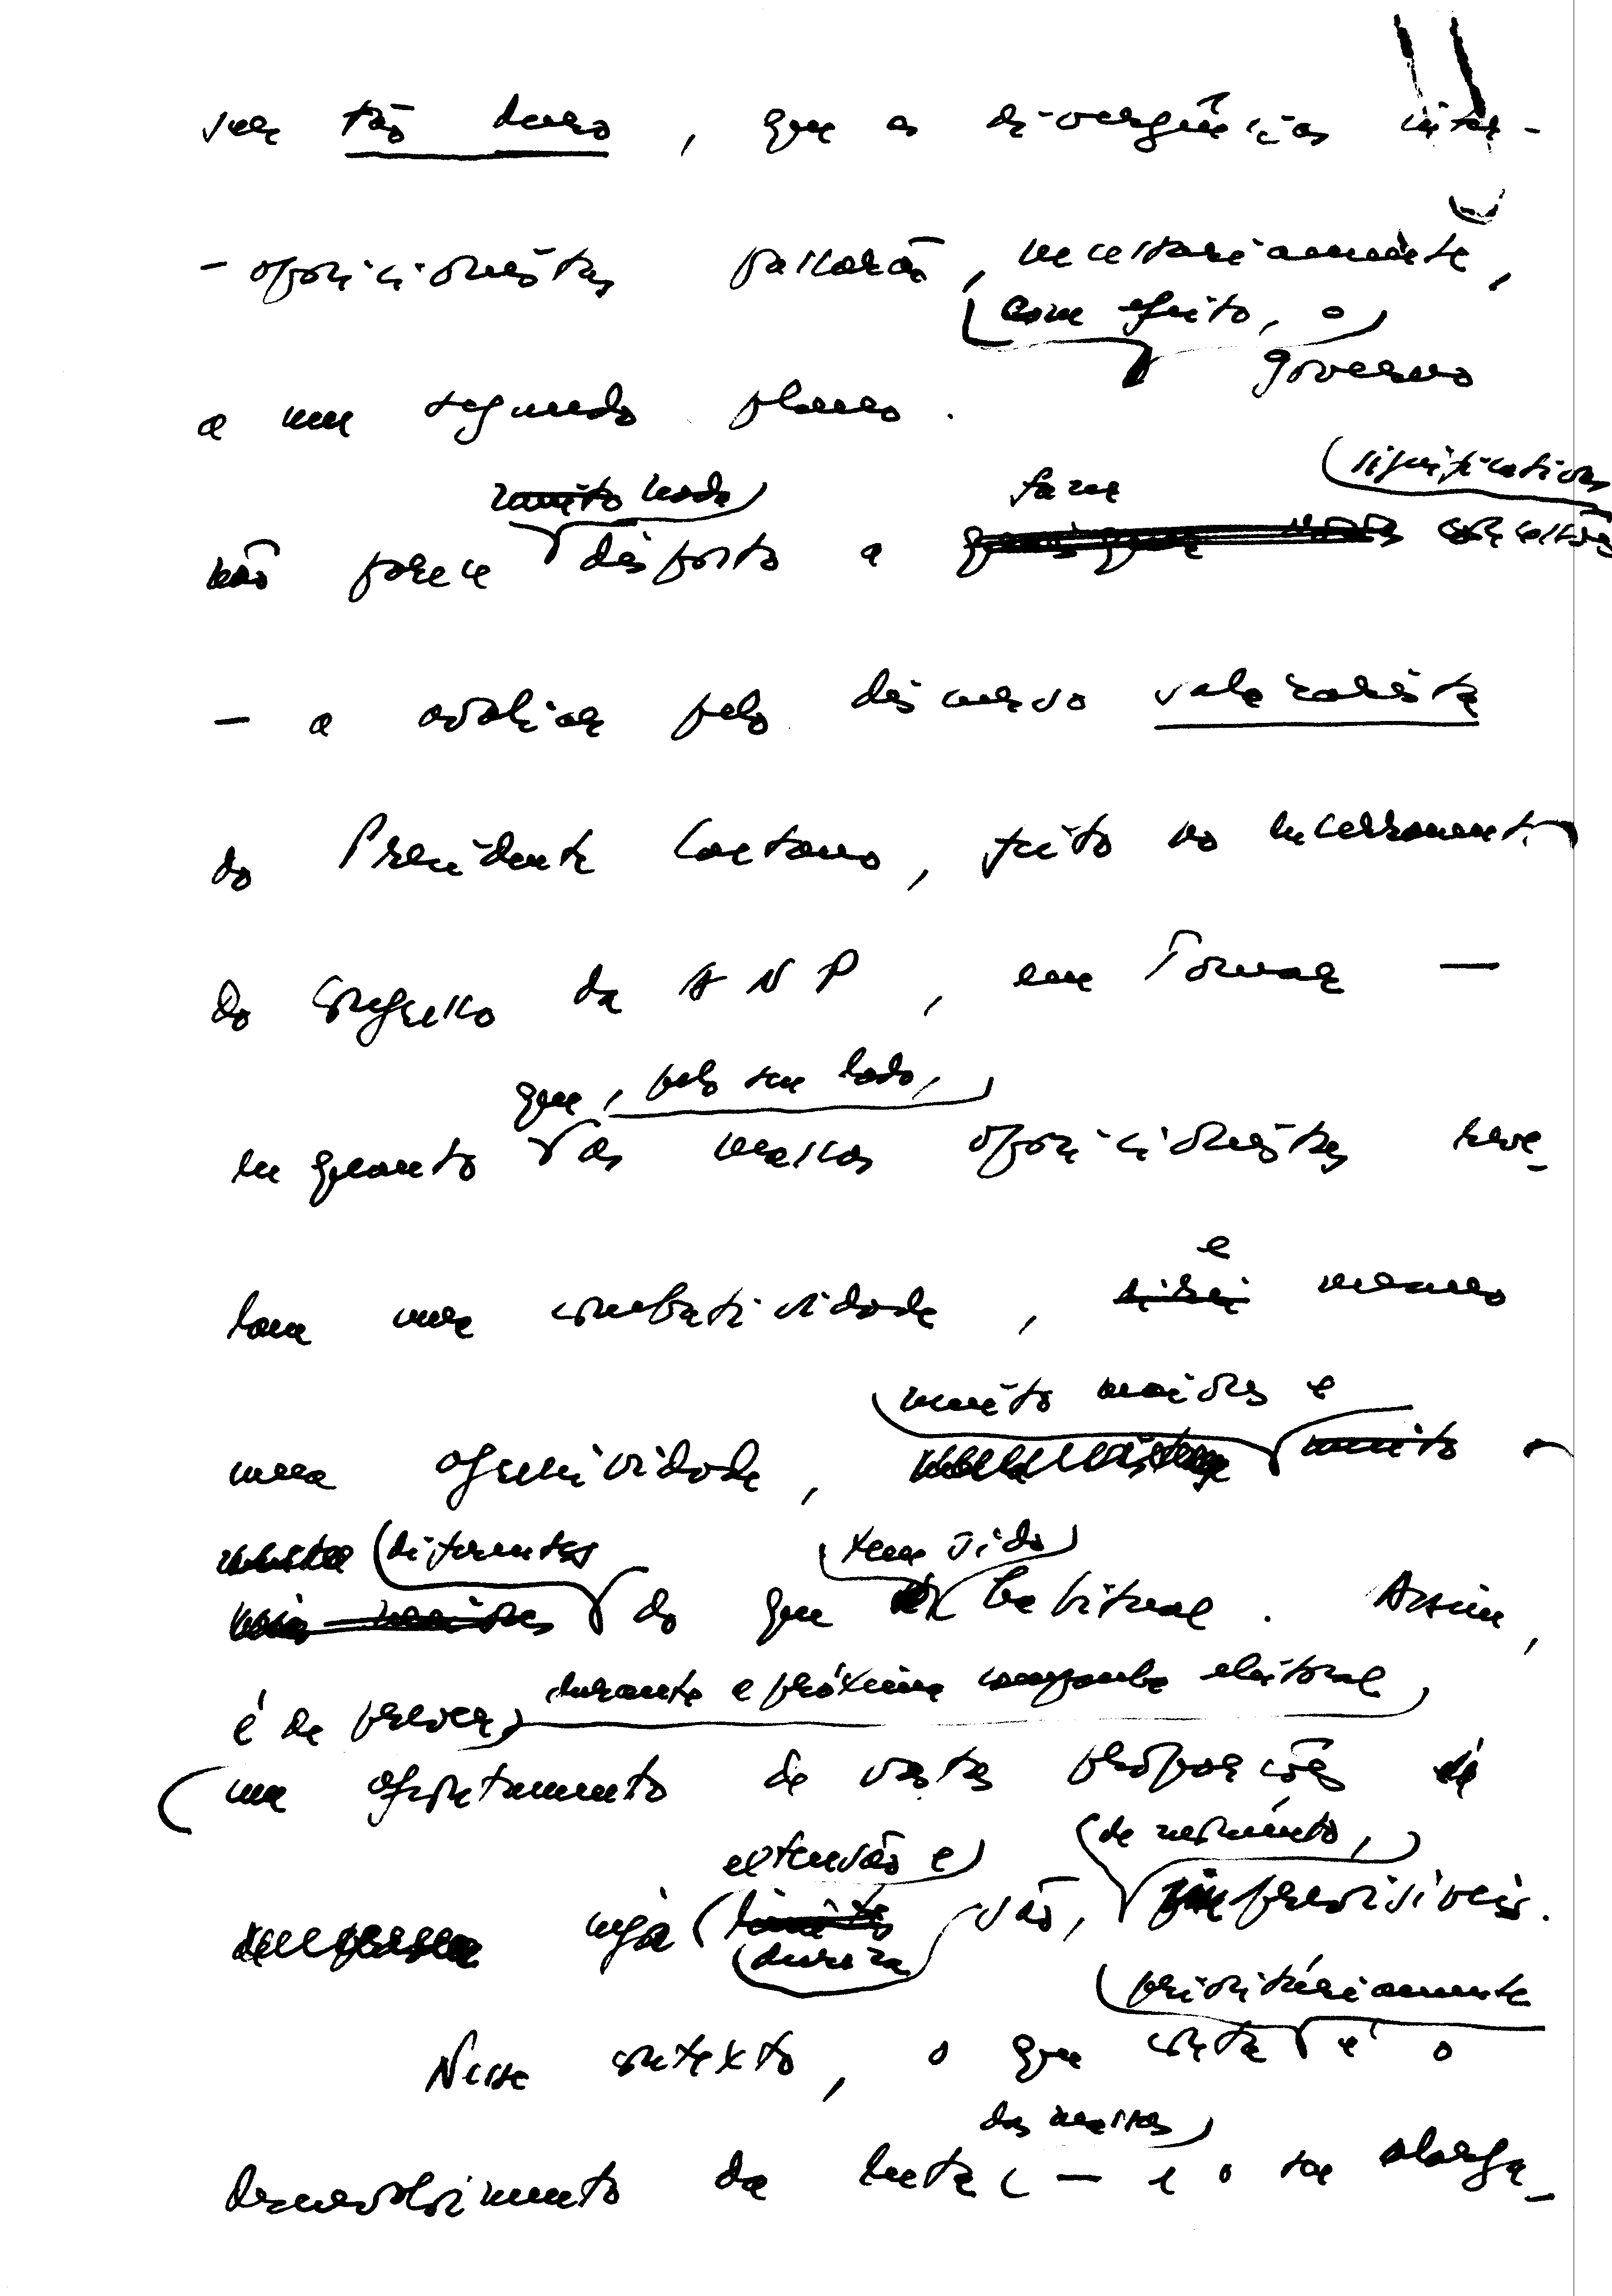 ser tão duro, que as divergências inter-
-oposicionistas passarão, necessariamente,
com efeito, o
a um segundo plano. governo
muito nada fazer significativas
não parece disposto a concessões
— a avaliar pelo discurso salazarista
do Presidente Caetano, feito no encerramento
do Congresso da ANP, em Tomar —
que, pelo seu lado,
enquanto as massas oposicionistas reve-
e
lam uma combatividade, mesmo
muito maiores e
uma agressividade, muito
diferentes tem sido
mais maiores do que habitual. Assim,
é de prever, durante a próxima campanha eleitoral,
um afrontamento de vastas proporções
extensão e de momento,
cuja limites são, imprevisíveis.
dureza prioritáriamente
Nesse contexto, o que conta é o
das massas
desenvolvimento da luta — e o seu alarga-